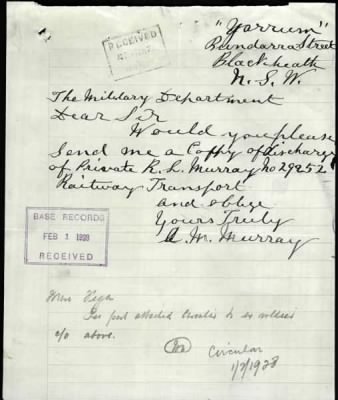 "Yarrum"
RECEIVED
Bundarra Street
Blackheath
N. S. W.
The Military Department
Dear Sir
Would you please
Send me a Coppy of discharge
of Private R. L. Murray No 29252
Railway Transport
and oblige
Yours Truly
A. M. Murray
BASE RECORDS
FEB 1 1928
RECEIVED
Miss
attached to ex soldier
c/o above.
Circular
1/2/1928